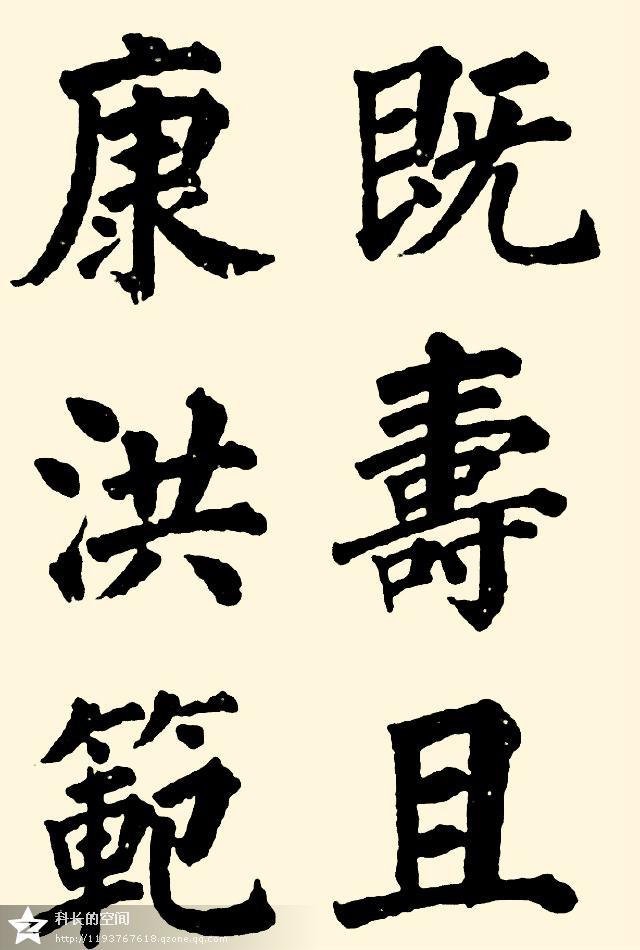 既壽且
康洪範
科长的空间
http://1193767618.qzone.qq.com